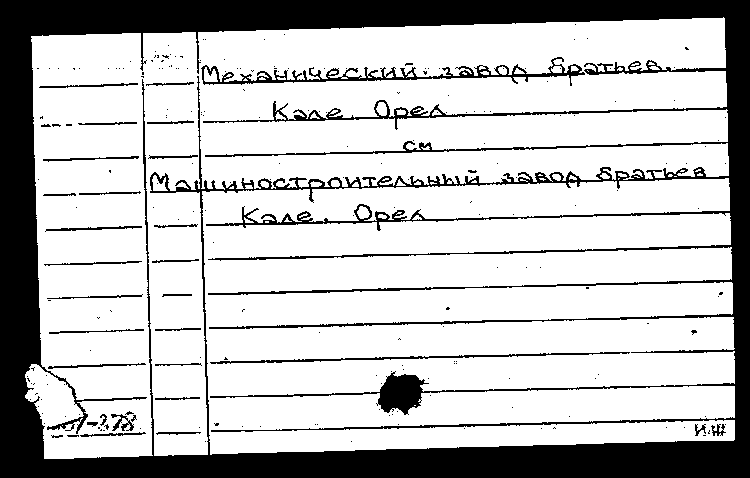 Механический завод братьев.
Кале Орел
см
Машиностроительный завод братьев
Кале. Орел
-278
И.Ш